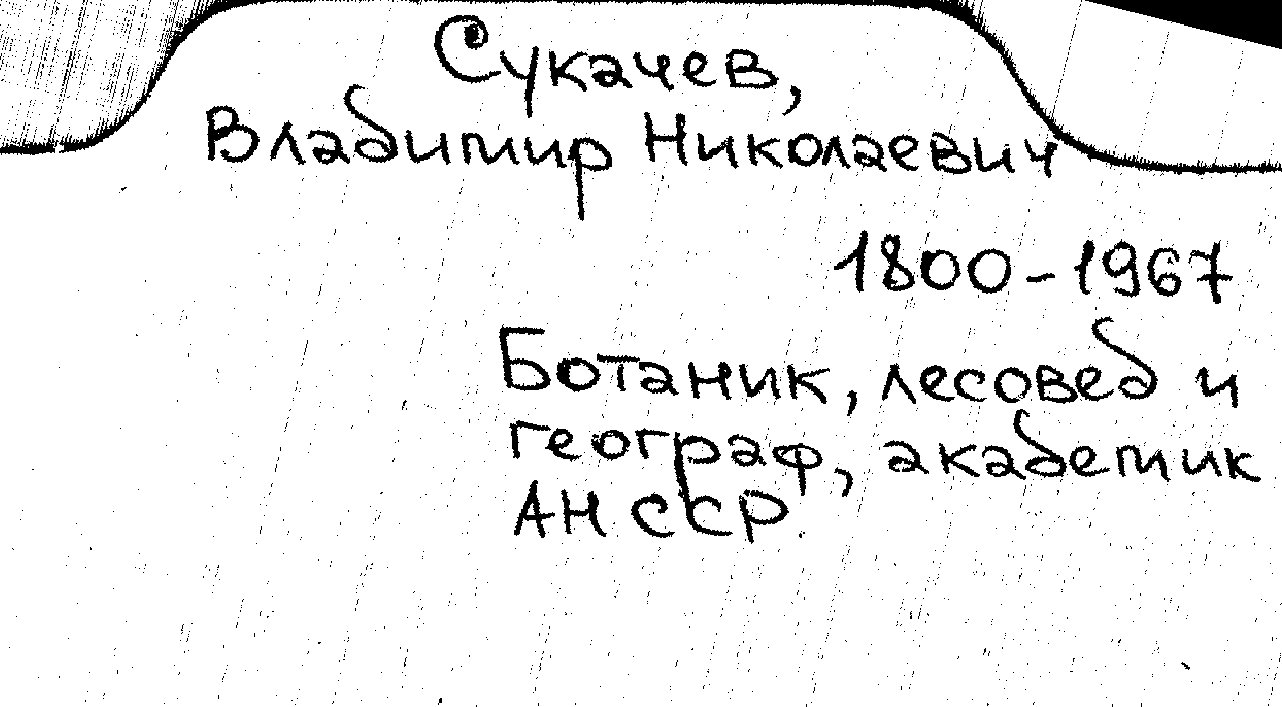 Сукачев,
Владимир Николаевич
1800-1967
Ботаник, лесовед и
географ, академик
АН ССР.